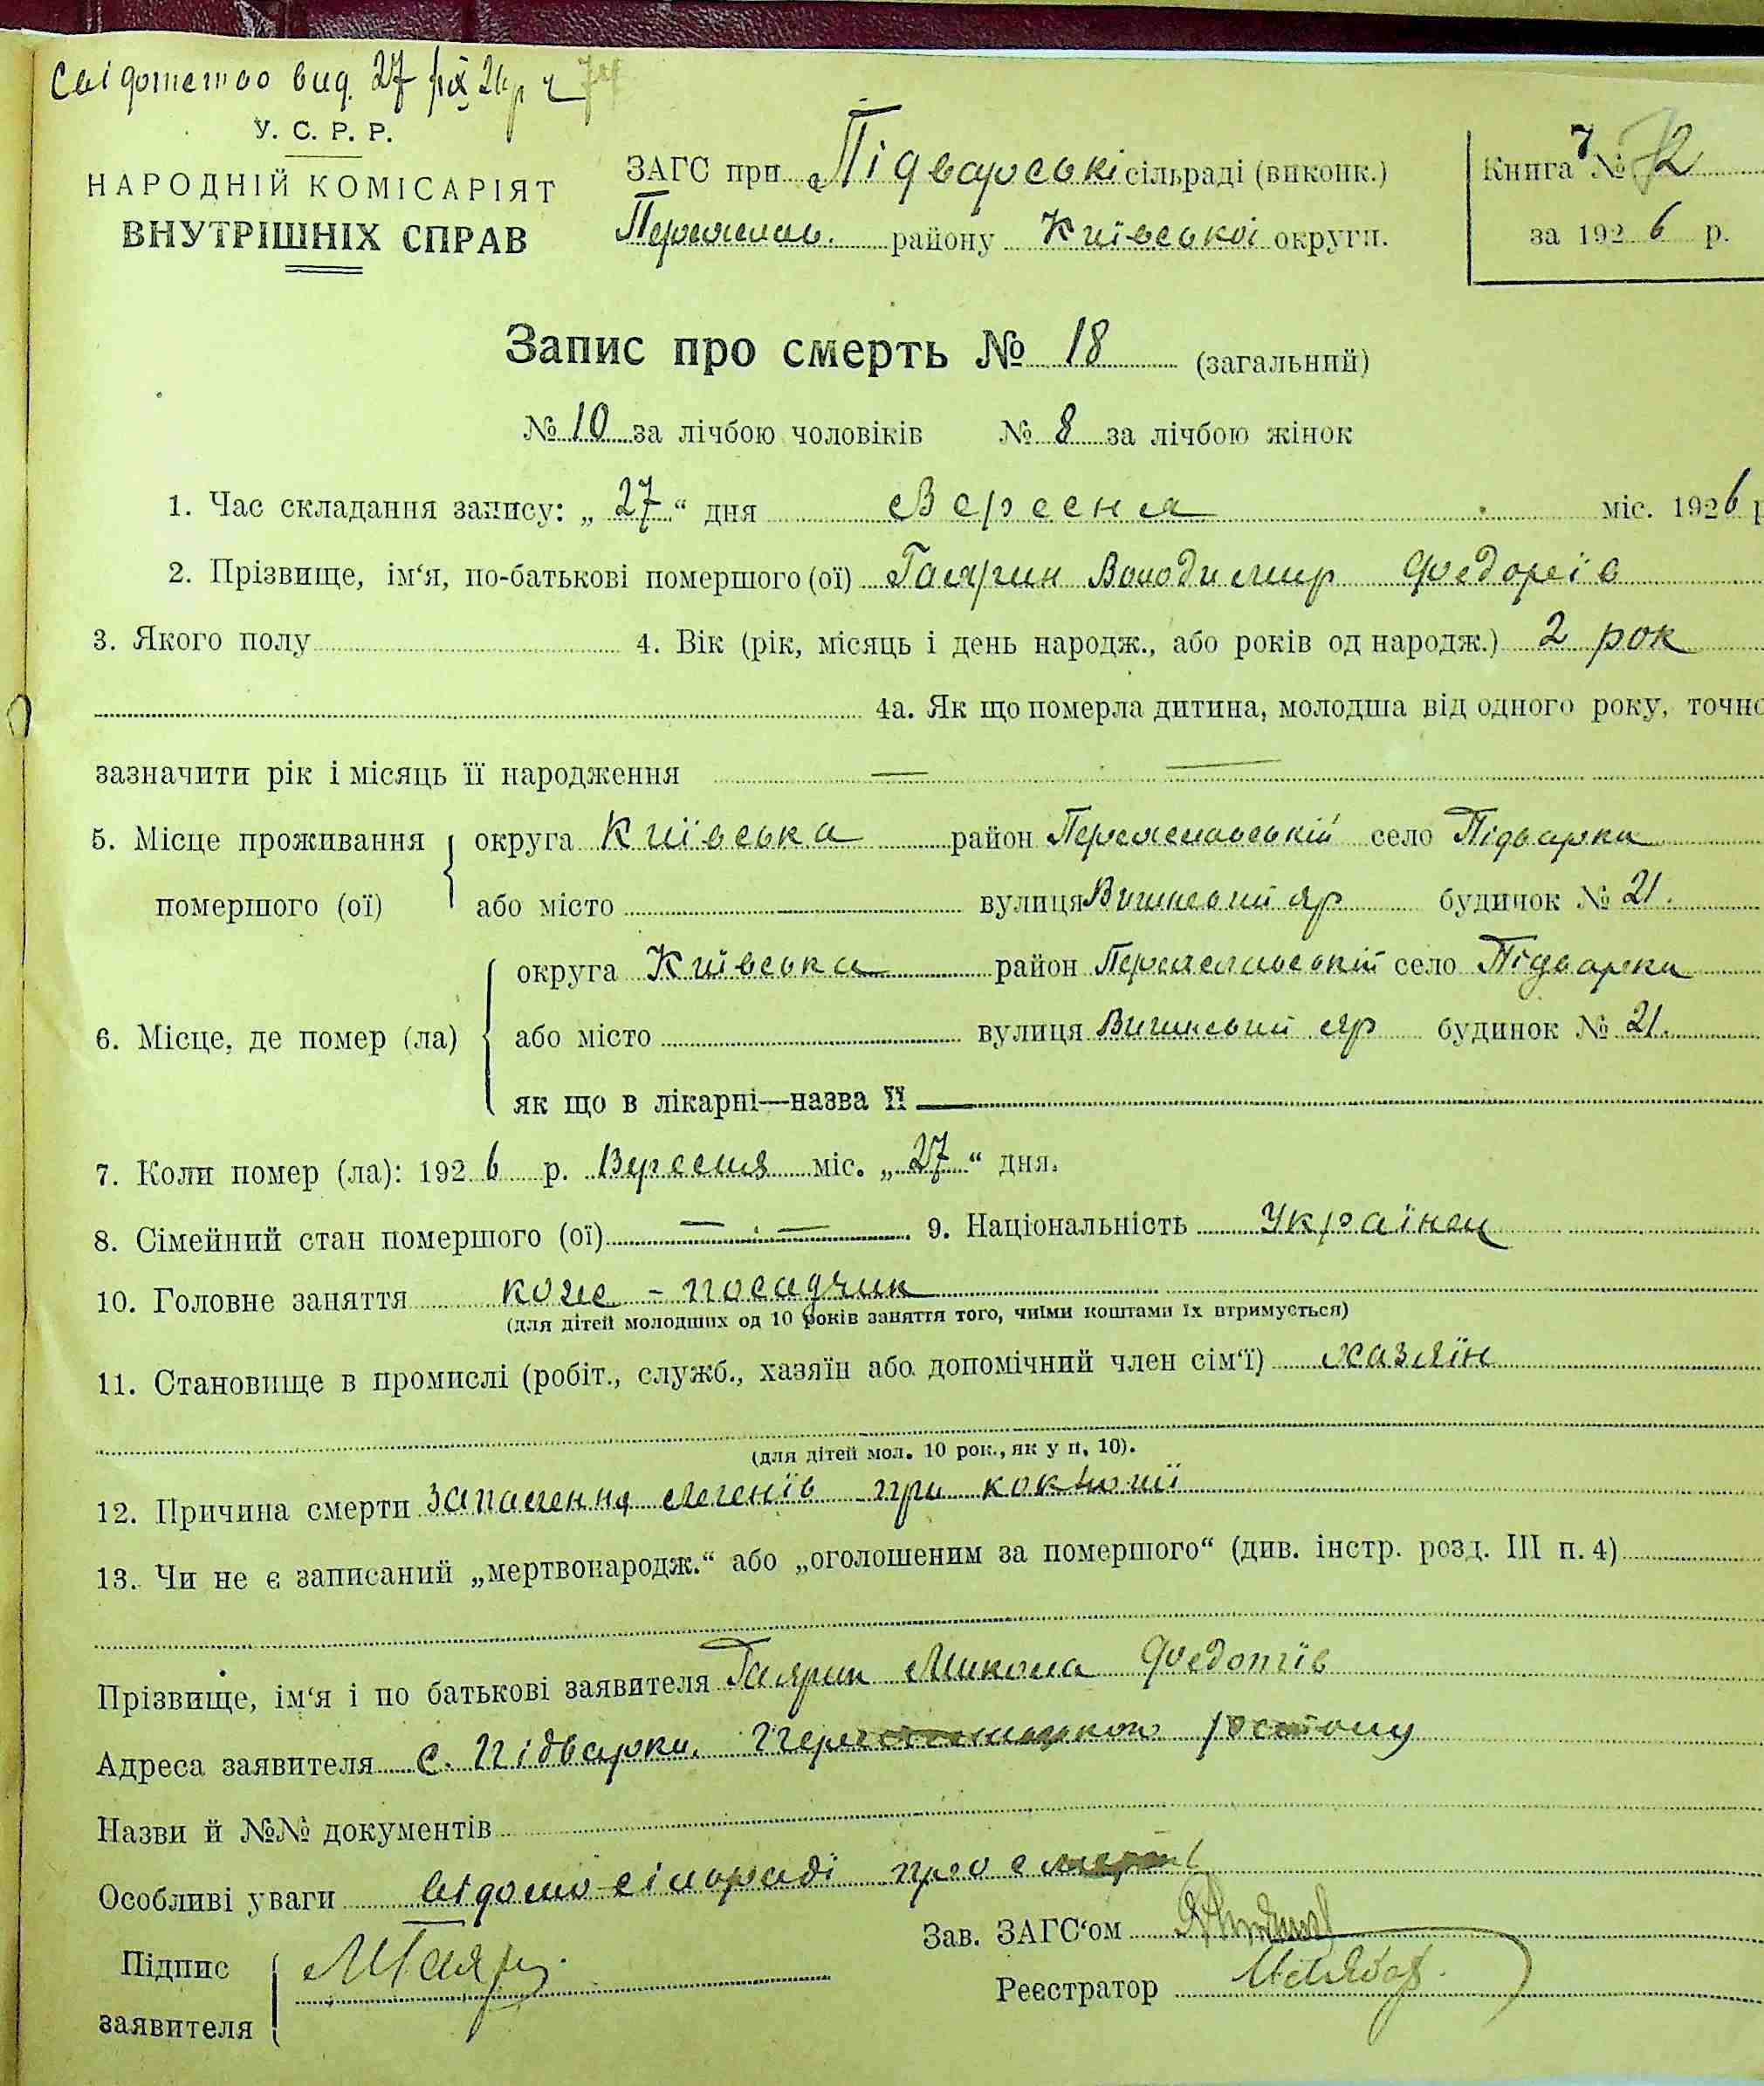 Свідоцтво вид. 27/ІХ 26р ч 74
У. С. Р. Р.
НАРОДНІЙ КОМІСАРІЯТ
ВНУТРІШНІХ СПРАВ
ЗАГС при Підварські сільраді (виконк.)
Переяслав. району Київської округи.
Книга № 7
за 1926 р.
Запис про смерть № 18 (загальний)
№ 10 за лічбою чоловіків № 8 за лічбою жінок
1. Час складання запису: „27“ дня Вересня міс. 1926 р
2. Прізвище, ім‘я, по-батькові помершого (ої) Гаярин Володимир Федорів
3. Якого полу 4. Вік (рік, місяць і день народж., або років од народж.) 2 рок
4а. Як що померла дитина, молодша від одного року, точно
зазначити рік і місяць її народження — —
5. Місце проживання округа Київська район Переяславській село Підварки
помершого (ої) або місто вулиця Вишневий яр будинок № 21.
округа Київська район Переяславській село Підварки
6. Місце, де помер (ла) або місто вулиця Вишневий яр будинок № 21.
як що в лікарні—назва її —
7. Коли помер (ла): 1926 р. Вересня міс. „27“ дня.
8. Сімейний стан помершого (ої) — . — 9. Національність Українец
10. Головне заняття посадчик
(для дітей молодших од 10 років заняття того, чиїми коштами їх втримується)
11. Становище в промислі (робіт., служб., хазяїн або допомічний член сім‘ї) хазяїн
(для дітей мол. 10 рок., як у п. 10).
12. Причина смерти Запалення легенів при коклюшї
13. Чи не є записаний „мертвонародж.“ або „оголошеним за помершого“ (див. інстр. розд. III п. 4)
Прізвище, ім‘я і по батькові заявителя Гаярин Микола Федотів
Адреса заявителя с. Підварки
Назви й №№ документів
Особливі уваги відомо сільраді про смерть
Зав. ЗАГС‘ом
Підпис МГаяр
Реєстратор
заявителя